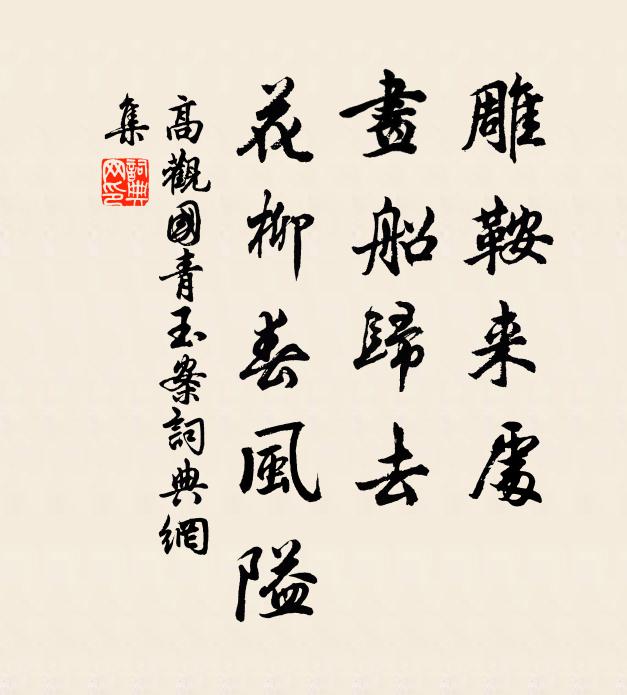 雕鞍来處
畫船歸去
花柳春風隘
高觀國青玉案詞典網
集
詞典
网印